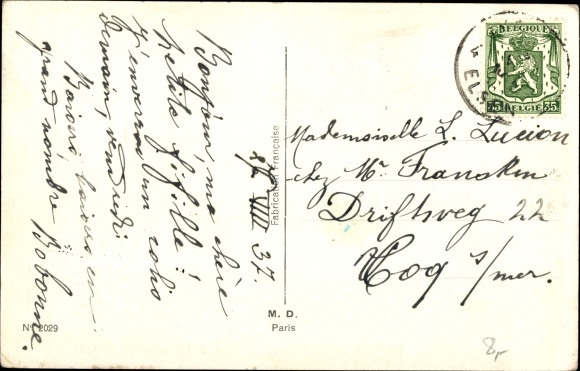 Bonjour, ma chère
petite fifille!
J'enverrai un colis
demain, vendredi.
Baisers, baisers en
grand nombre
Bobonne.
27 VIII 37.
Fabrication Française
M. D.
Paris
N° 2029
BELGIQUE
35 BELGIË 35
Mademoiselle L. Lucion
chez Mr. Francken
Driftweg 22
Coq s/mer.
8,-